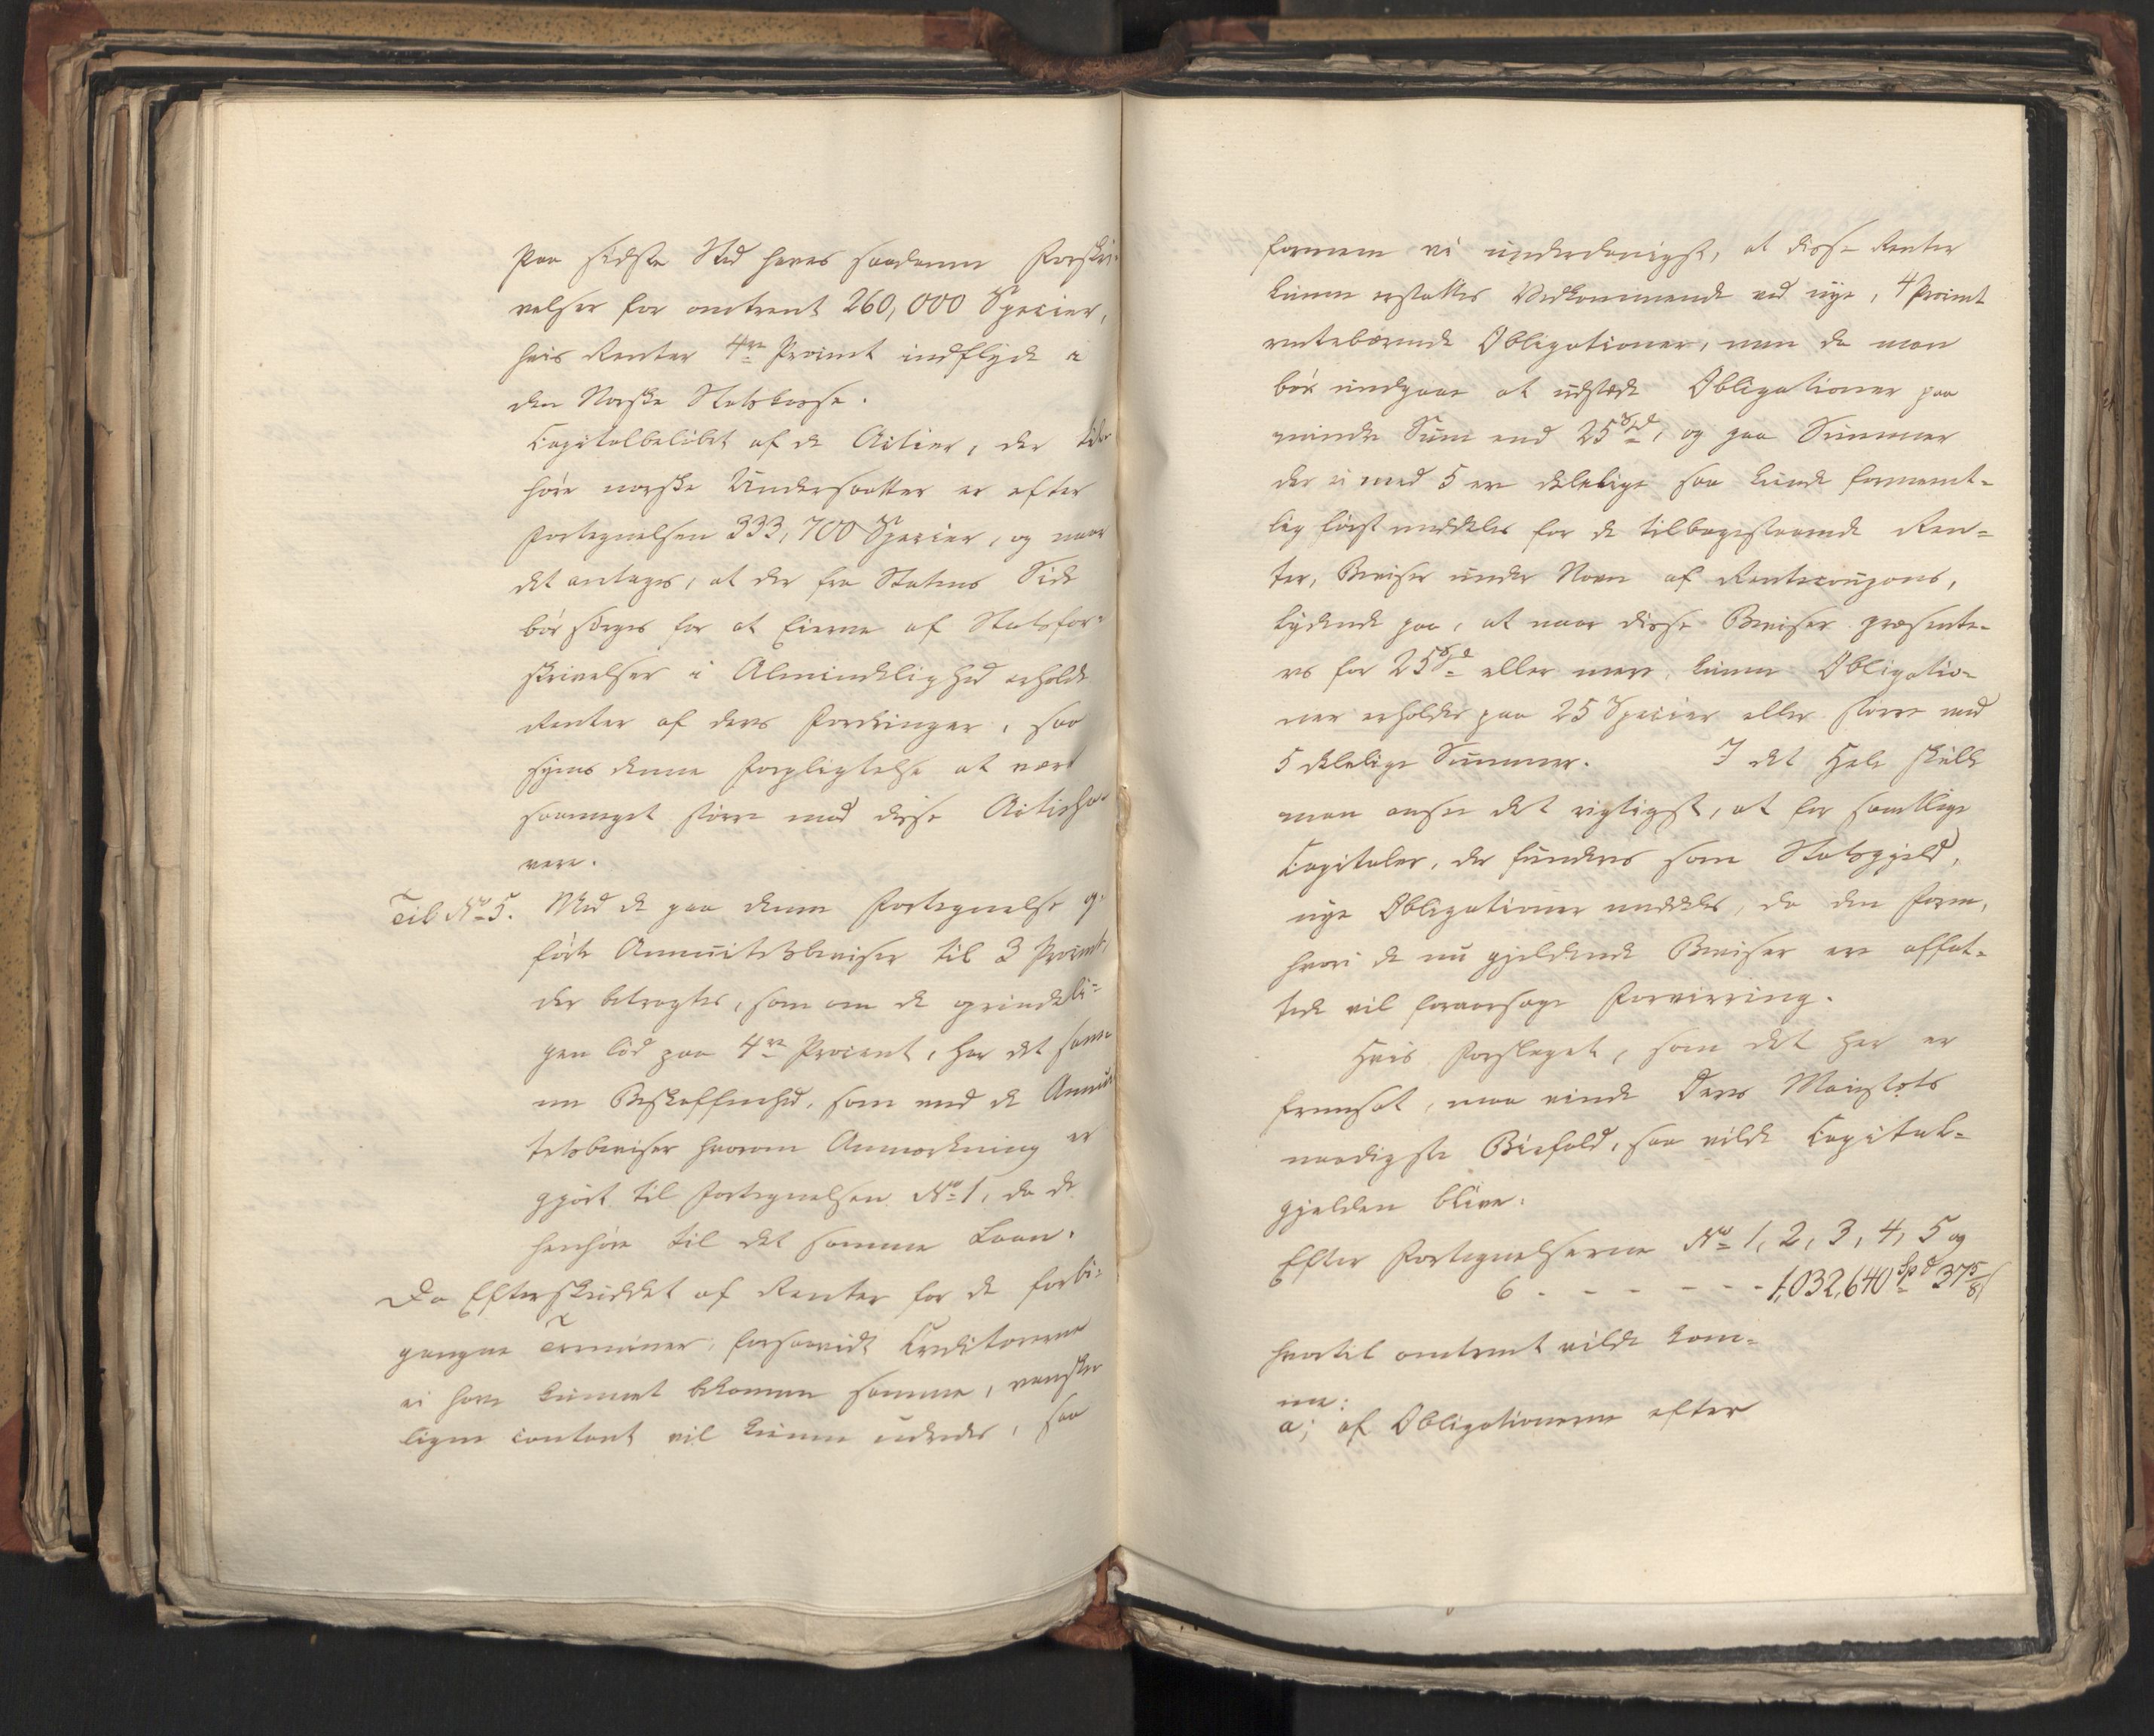 Paa sidste Sted haves saadanne Forskri-
velser for omtrent 260,000 Specier,
hvis Renter 4re Procent indflyde i
den Norske Statskasse.
Capitalbeløbet af de Actier, der til-
høre norske Undersaatter er efter
Fortegnelsen 333,700 Specier, og naar
det antages, at der fra Statens Side
bør sørges for at Eierne af Statsfor-
skrivelser i Almindelighed erholde
Renter af deres Fordringer, saa
synes denne Forpligtelse at være
saameget større mod disse Actieha-
vere.
Til No 5. Med de paa denne Fortegnelse op-
førte Annuitetsbeviser til 3 Procent,
der betragtes, som om de grundeli-
gen lød paa 4re Procent, har det sam-
me Beskaffenhed, som med de Annui-
tetsbeviser hvorom Anmærkning er
gjort til Fortegnelsen No 1, da de
henhøre til det samme Laan.
Da Efterskuddet af Renter for de forbi-
gangne Terminer, forsaavidt Creditorerne
ei have kunnet bekomme samme, vanske-
ligen contant vil kunne udredes, saa
formene vi underdanigst, at disse Renter
kunne erstattes Vedkommende ved nye, 4 Procent
rentebærende Obligationer, men da man
bør undgaae at udstæde Obligationer paa
mindre Sum end 25 Spd, og paa Summer
der ei med 5 ere delelige saa kunde formeent-
lig først meddeles for de tilbagestaaende Ren-
ter, Beviser under Navn af Rentecoupons,
lydende paa, at naar disse Beviser præsente-
res for 25 Spd eller mere, kunne Obligatio-
ner erholdes paa 25 Specier eller større med
5 delelige Summer. I det Hele skulle
man ansee det rigtigst, at for samtlige
Capitaler, der funderes som Statsgjeld,
nye Obligationer meddeles, da den Form,
hvori de nu gjeldende Beviser ere affat-
tede vil foraarsage Forvirring.
Hvis Forslaget, som det her er
fremsat, maa vinde Deres Majestæts
naadigste Biefald, saa vilde Capital-
gjelden blive:
Efter Fortegnelserne No 1, 2, 3, 4, 5 og
6 - - - - - - 1,032,640 Spd 37 5/8 s
hvortil omtrent vilde kom-
me:
a; af Obligationerne efter